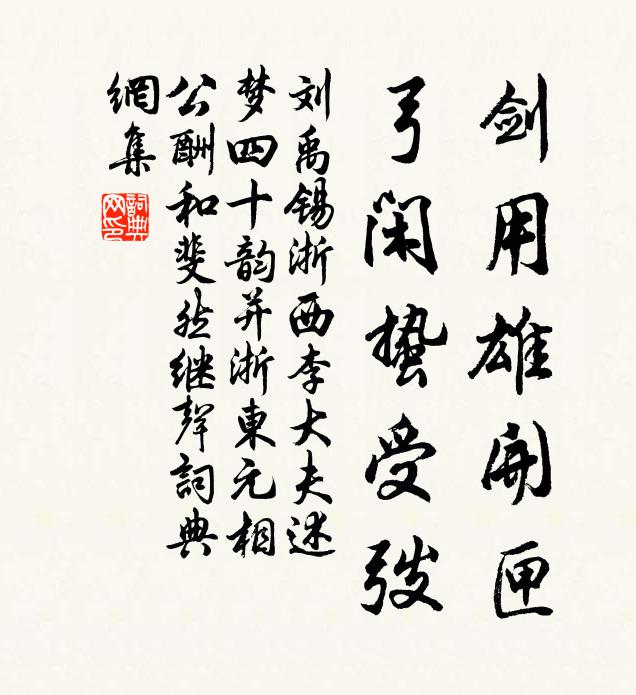 剑用雄开匣
弓闲蛰受弢
刘禹锡浙西李大夫述
梦四十韵并浙東元相
公酬和斐然继聲詞典
網集
詞典網印